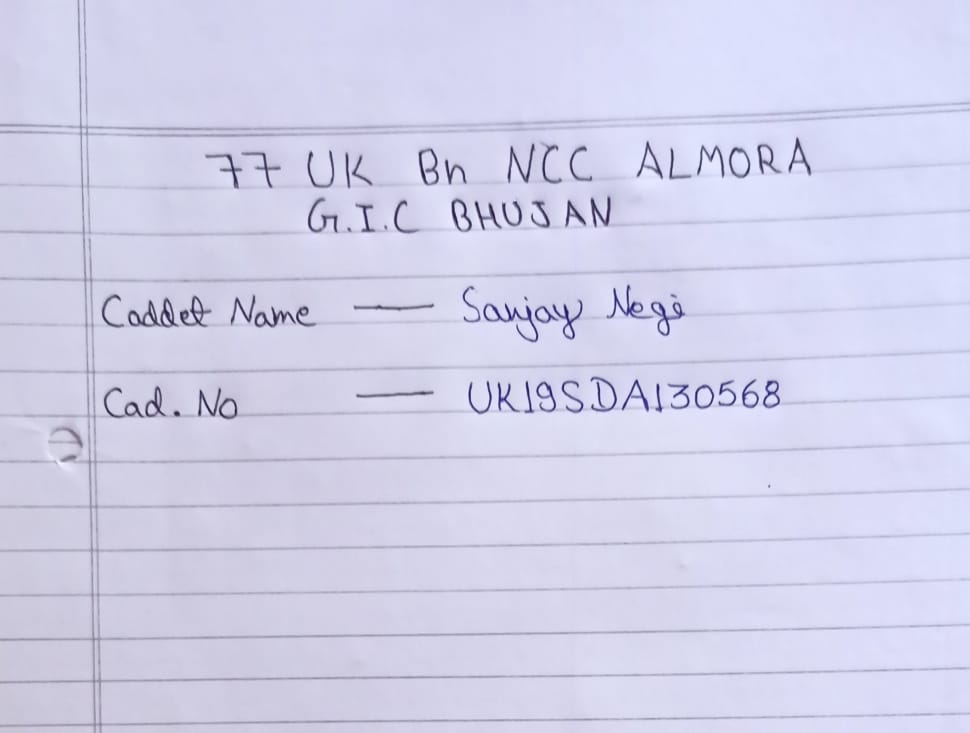 77 UK Bn NCC ALMORA
G.I.C BHUJAN
Caddet Name — Sanjay Negi
Cad. No — UK19SDA130568